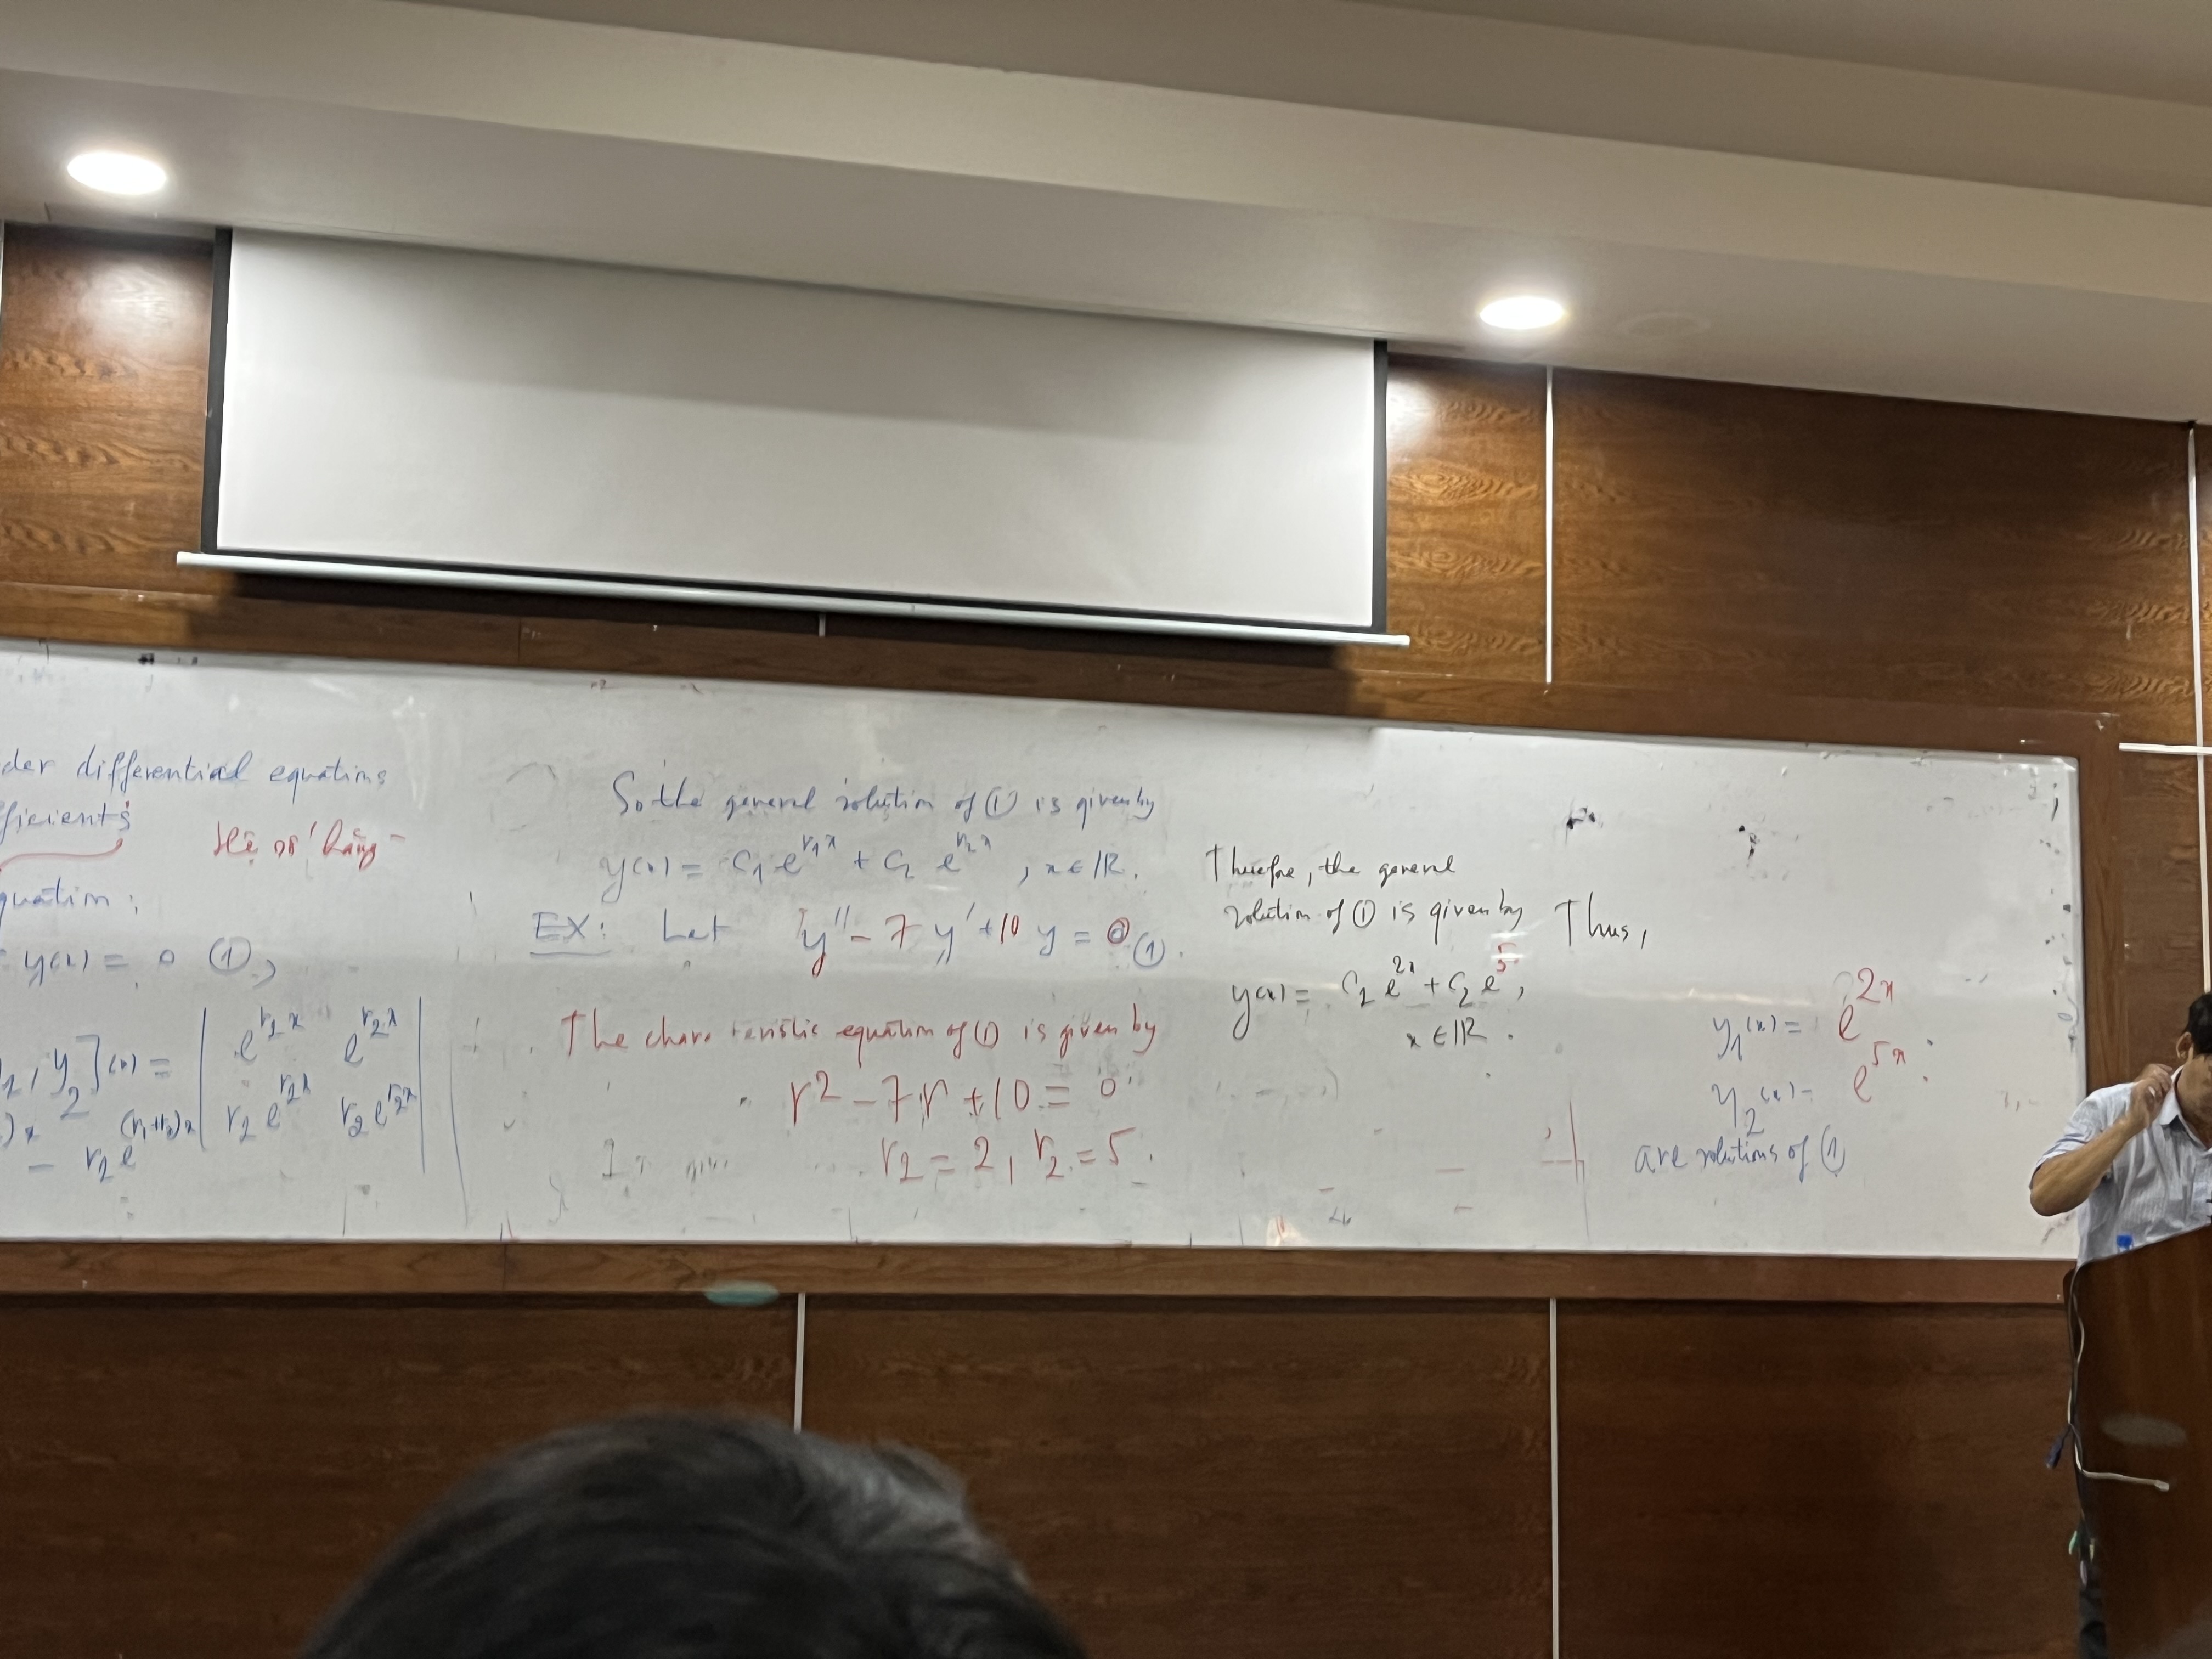 der differential equations
fficients
Hệ số hằng
quation:
y(x) = 0 ①,
, y₂](x) = | e^{r₁x} e^{r₂x} |
| r₁e^{r₁x} r₂e^{r₂x} |
)x – r₁e^{(r₁+r₂)x}
So the general solution of ① is given by
y(x) = C₁e^{r₁x} + C₂ e^{r₂x}, x ∈ ℝ.
EX: Let y'' – 7 y' + 10 y = 0 ①.
The characteristic equation of ① is given by
r² – 7r + 10 = 0
r₁ = 2, r₂ = 5.
Therefore, the general
solution of ① is given by
y(x) = C₁ e^{2x} + C₂ e^{5},
x ∈ ℝ.
Thus,
y₁(x) = e^{2x}
y₂(x) = e^{5x}
are solutions of ①